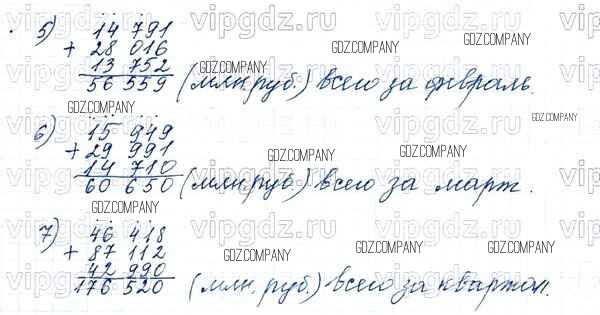 vipgdz.ru vipgdz.ru vipgdz.ru
5) 14 791
+ 28 016
GDZ.COMPANY
13 752
GDZ.COMPANY
56 559 (млн. руб.) всего за февраль.
vipgdz.ru vipgdz.ru vipgdz.ru
GDZ.COMPANY
6) 15 949
+ 29 991
GDZ.COMPANY GDZ.COMPANY
14 710
vipgdz.ru vipgdz.ru vipgdz.ru
60 650 (млн. руб.) всего за март.
GDZ.COMPANY GDZ.COMPANY
7) 46 418
vipgdz.ru vipgdz.ru vipgdz.ru
+ 87 112
GDZ.COMPANY GDZ.COMPANY
42 990
176 520 (млн. руб.) всего за квартал.
vipgdz.ru vipgdz.ru vipgdz.ru